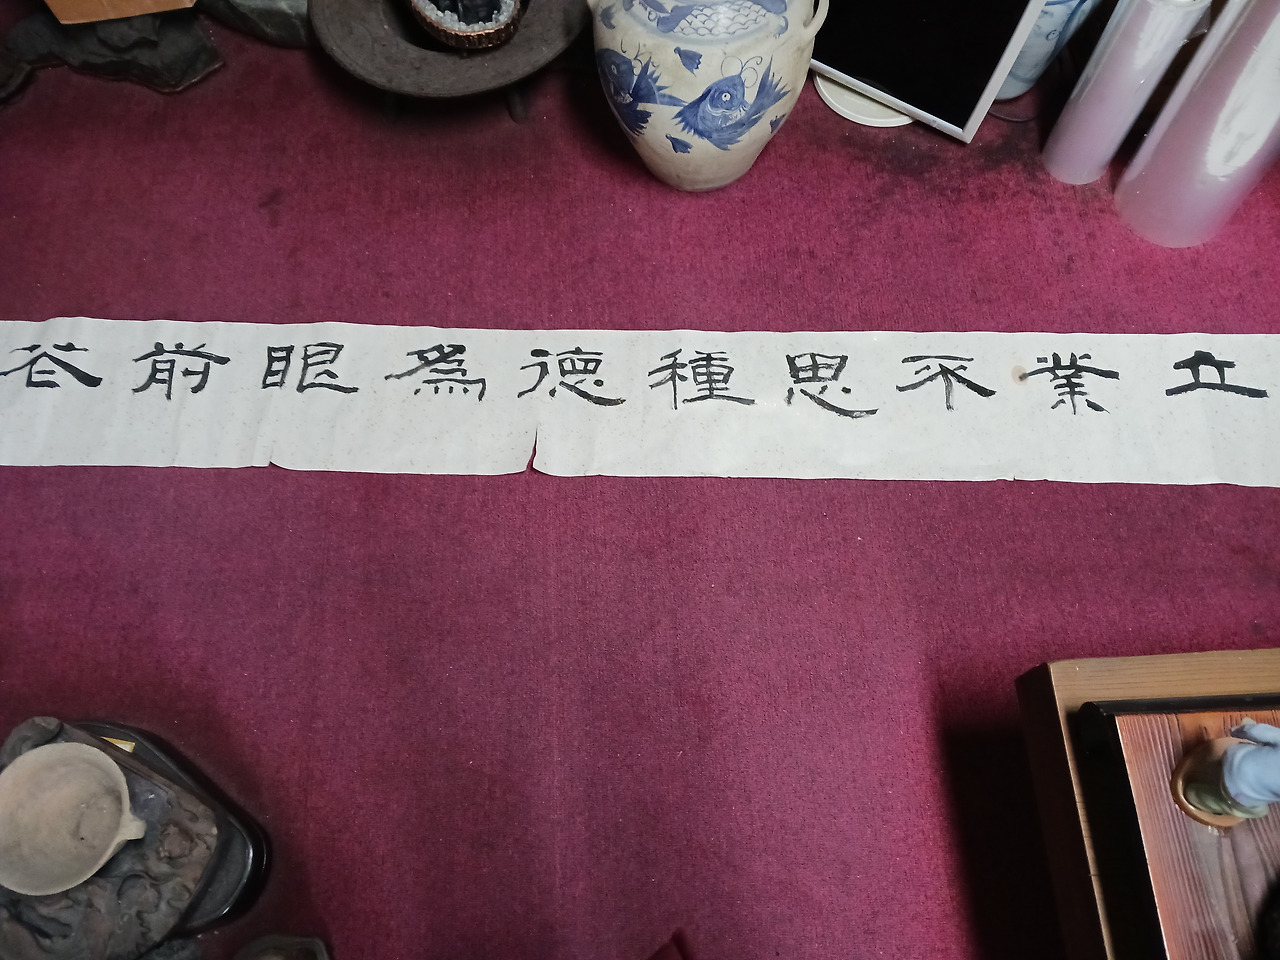 立業不思種德爲眼前花